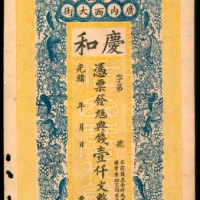 廣內西大街
慶和
字第 號
憑票發典錢壹仟文整
光緒 年 月 日 票